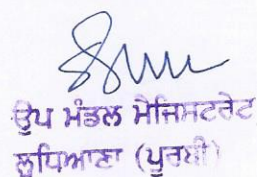 ਉਪ ਮੰਡਲ ਮੈਜਿਸਟਰੇਟ
ਲੁਧਿਆਣਾ (ਪੂਰਬੀ)